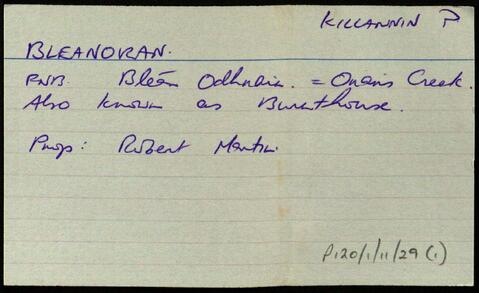 KILLANNIN P
BLEANORAN.
PNB. Bleán Odhráin. = Oran's Creek.
Also known as Burnthouse.
Prop: Robert Martin.
P120/1/11/29 (1)